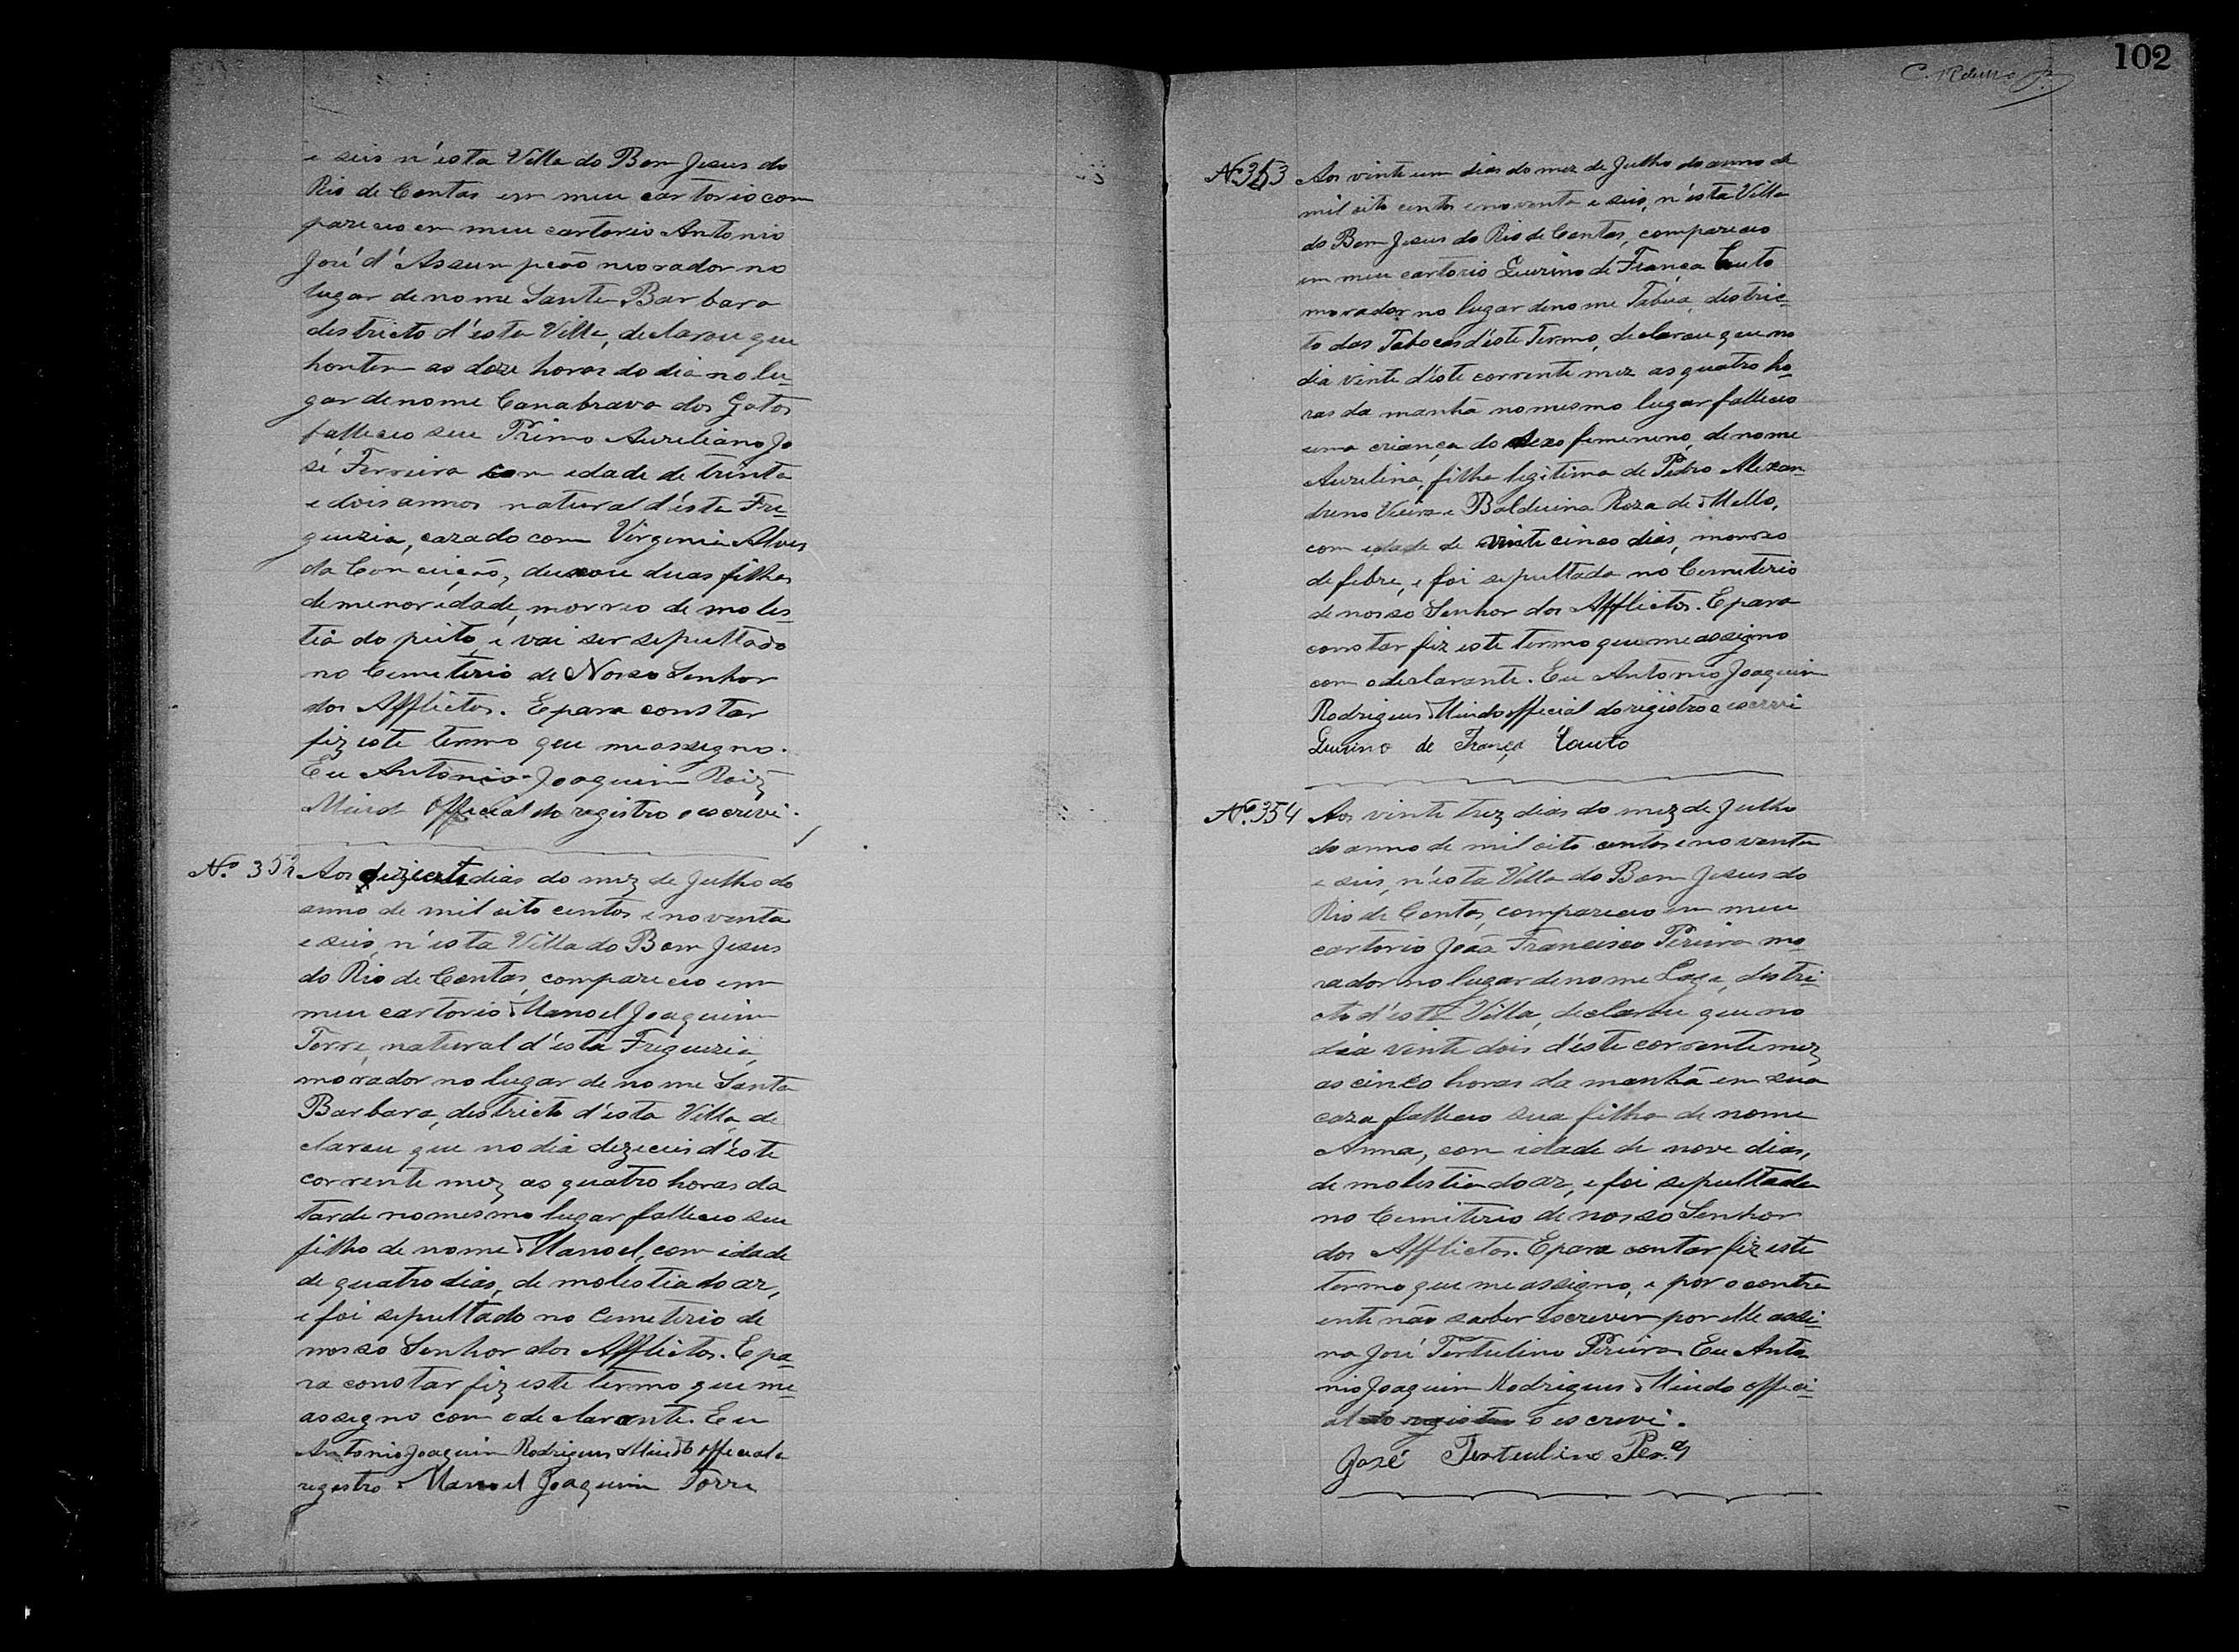 e seis n'esta Villa do Bom Jesus do
Rio de Contas em meu cartorio com
pareceo em meu cartorio Antonio
José d'Assumpcaõ morador no
lugar de nome Santa Barbara
destricto d'esta Villa, declarou que
hontem as doze horas do dia no lu-
gar de nome Canabrava dos Gatos
falleceo seu Primo Aureliano Jo
sé Ferreira com edade de trinta
e dois annos natural d'ésta Fre-
guezia, cazado com Virgenia Alves
da Conceiçaõ, deixou duas filhas
de menor idade, morreo de moles-
tia do peito, e vai ser sepultado
no Cemeterio de Nosso Senhor
dos Afflictos. E para constar
fiz este termo que me assegno.
Eu Antonio Joaquim Roiz
Official do registro o escrevi.
Nº 352 Aos dias do mez de Julho do
anno de mil oito centos e noventa
e seis, n'esta Villa do Bom Jesus
do Rio de Contas, compareceo em
meu cartorio Manoel Joaquim
Torre, natural d'ésta Freguezia,
morador no lugar de nome Santa
Barbara, destricto d'ésta Villa, de
clarou que no dia dezeceis d'este
corrente mez as quatro horas da
tarde no mesmo lugar falleceo seu
filho de nome Manoel, com idade
de quatro dias, de molestia do ar,
e foi sepultado no Cemeterio de
nosso Senhor dos Afflictos. E pa-
ra constar fiz este termo que me
assegno com o declarante. Eu
Antonio Joaquim Rodrigues official o
registro Manoel Joaquim Torre
102
Nº 353 Aos vinte um dias do mez de Julho do anno de
mil oito centos e noventa e seis, n'ésta Villa
do Bom Jesus do Rio de Contas, compareceo
em meu cartorio de França Couto
morador no lugar de nome Tabúa, destric-
to das Tabocas d'éste Termo, declarou que no
dia vinte d'éste corrente mez as quatro ho-
ras da manhã no mesmo lugar falleceo
uma criança do sexo femenino, de nome
Aurelina, filha legitima de Pedro Alexan
dreno Vieira e Balduina Roza de Mello,
com edade de vinte cinco dias, morreo
de febre, e foi sepultada no Cemeterio
de nosso Senhor dos Afflictos. E para
constar fiz este termo que me assegno
com o declarante. Eu Antonio Joaquim
Rodrigues official do registro o escrevi
de França Couto
Nº 354 Aos vinte trez dias do mez de Julho
do anno de mil oito centos e noventa
e seis, n'ésta Villa do Bom Jesus do
Rio de Contas, compareceo em meu
cartorio João Francisco Pereira mo-
rador no lugar de nome Lage, destri-
cto d'ésta Villa, declarou que no
dia vinte dois d'éste corrente mez
as cinco horas da manhã em sua
caza falleceo sua filha de nome
Anna, com idade de nove dias,
de molestia do ar, e foi sepultada
no Cemiterio de nosso Senhor
dos Afflictos. E para contar fiz este
termo que me assigno, e por o contra
ente não saber escrever por elle assi-
na José Tertulino Pereira Eu Anto
nio Joaquim Rodrigues offici-
al do registro o escrevi.
José Tertulino Per.ª